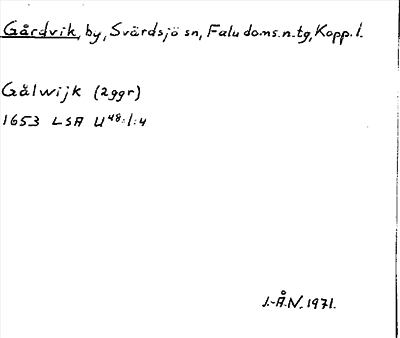 Gårdvik, by, Svärdsjö sn, Falu doms.n.tg, Kopp.l.
Gålwijk (2ggr)
1653 LSA U48:1:4
J.-Å.N. 1971.